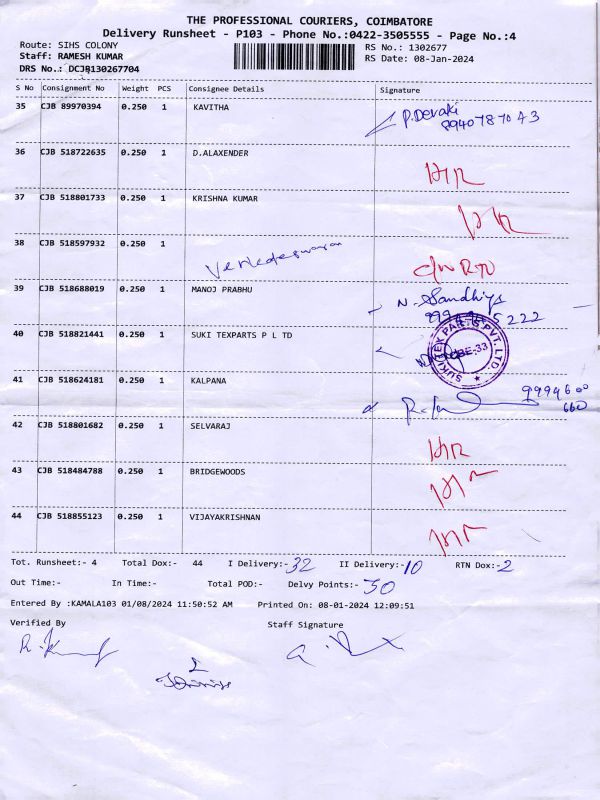 THE PROFESSIONAL COURIERS, COIMBATORE
Delivery Runsheet - P103 - Phone No.:0422-3505555 - Page No.:4
Route: SIHS COLONY
RS No.: 1302677
Staff: RAMESH KUMAR
RS Date: 08-Jan-2024
DRS No.: DCJB130267704
S No Consignment No Weight PCS Consignee Details Signature
35 CJB 89970394 0.250 1 KAVITHA P. Devaki
8940787073
36 CJB 518722635 0.250 1 D.ALAXENDER
37 CJB 518801733 0.250 1 KRISHNA KUMAR
38 CJB 518597932 0.250 1
39 CJB 518688019 0.250 1 MANOJ PRABHU N. Sandhiya
40 CJB 518821441 0.250 1 SUKI TEXPARTS P L TD
SUKI TEX PARTS PVT. LTD.
41 CJB 518624181 0.250 1 KALPANA
9994600
660
42 CJB 518801682 0.250 1 SELVARAJ
43 CJB 518484788 0.250 1 BRIDGEWOODS
44 CJB 518855123 0.250 1 VIJAYAKRISHNAN
Tot. Runsheet:- 4 Total Dox:- 44 I Delivery:- 32 II Delivery:- 10 RTN Dox:- 2
Out Time:- In Time:- Total POD:- Delvy Points:- 30
Entered By :KAMALA103 01/08/2024 11:50:52 AM Printed On: 08-01-2024 12:09:51
Verified By Staff Signature